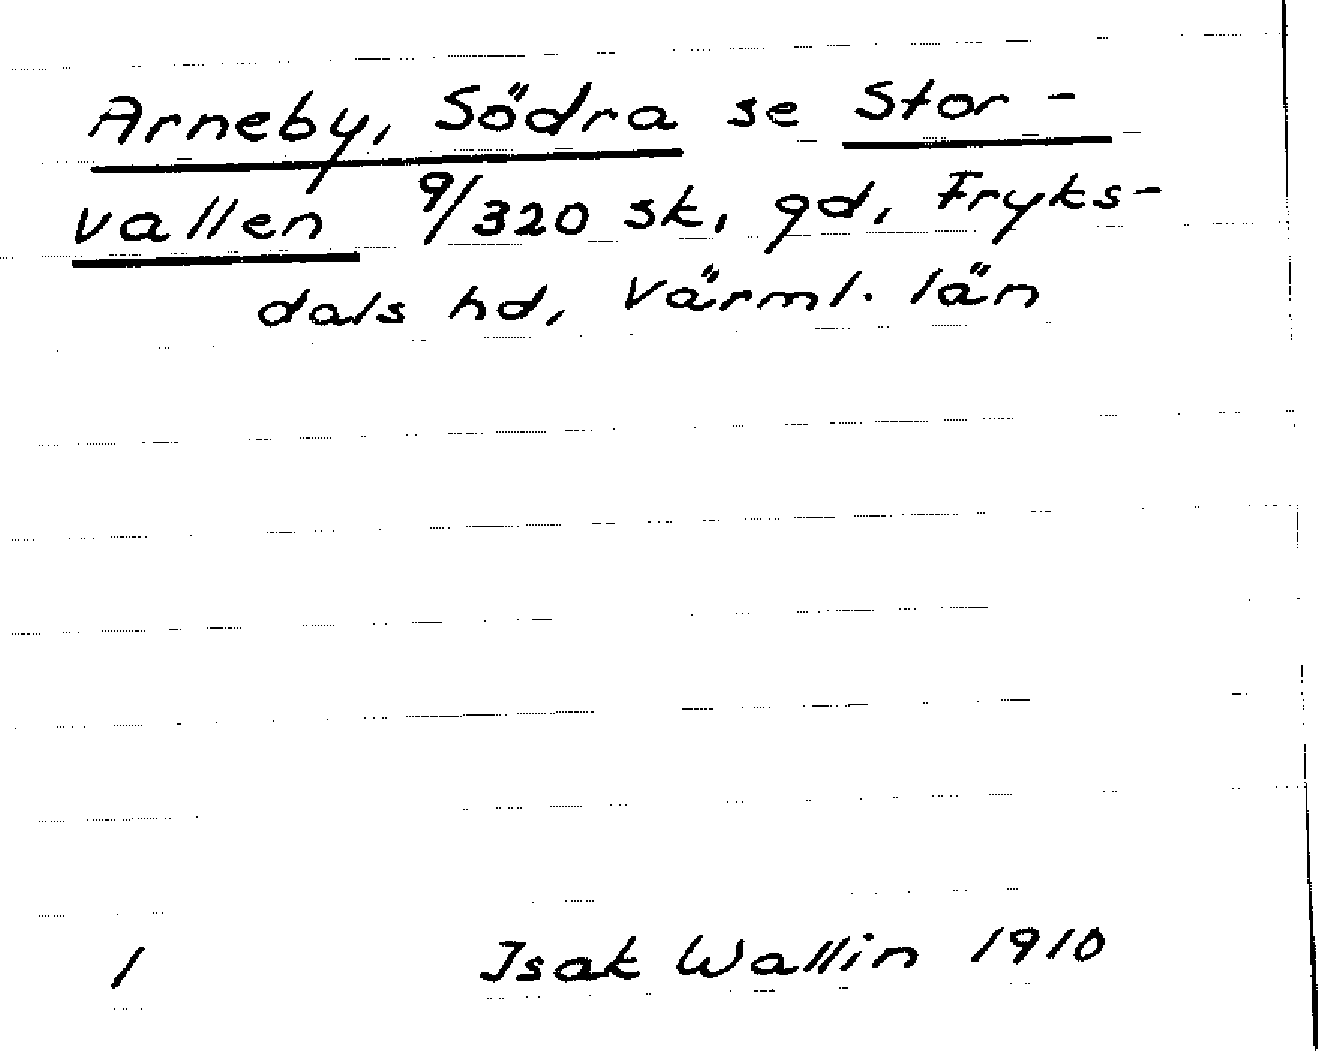 Arneby, Södra se Stor-
vallen 9/320 sk, gd, Fryks-
dals hd, Värml. län
1 Isak Wallin 1910